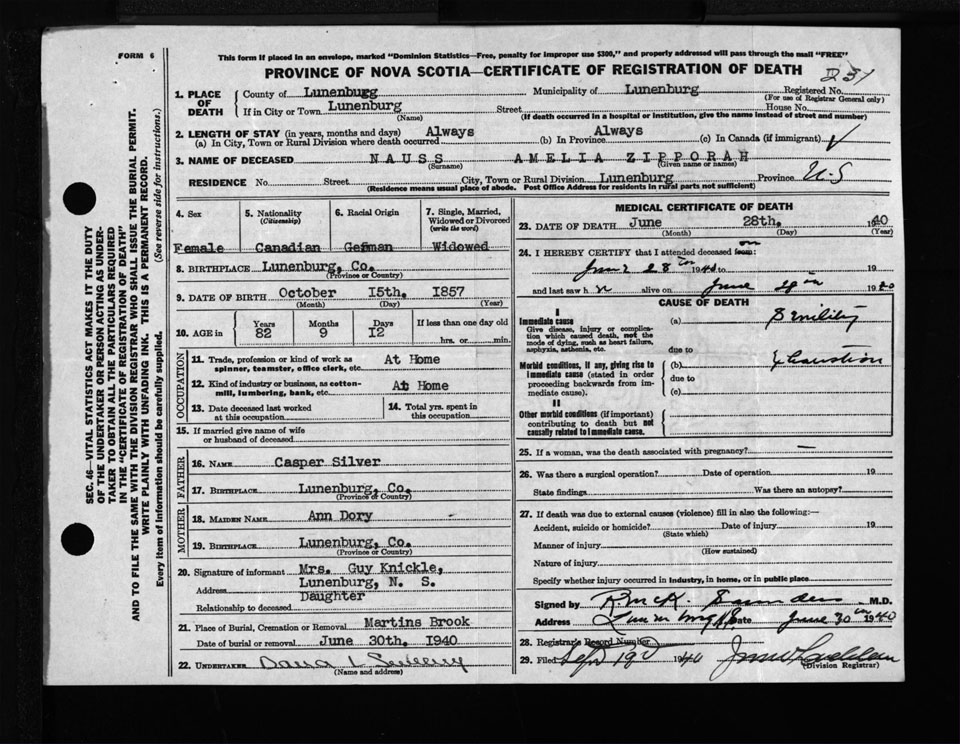 FORM 6
This form if placed in an envelope, marked "Dominion Statistics—Free, penalty for improper use $300," and properly addressed will pass through the mail "FREE"
PROVINCE OF NOVA SCOTIA—CERTIFICATE OF REGISTRATION OF DEATH
1. PLACE OF DEATH
County of Lunenburg Municipality of Lunenburg Registered No.
(For use of Registrar General only)
If in City or Town Lunenburg Street House No.
(Name) (If death occurred in a hospital or institution, give the name instead of street and number)
2. LENGTH OF STAY (in years, months and days) Always Always
(a) In City, Town or Rural Division where death occurred (b) In Province (c) In Canada (if immigrant)
3. NAME OF DECEASED NAUSS AMELIA ZIPPORAH
(Surname) (Given name or names)
RESIDENCE No. Street City, Town or Rural Division Lunenburg Province N.S
(Residence means usual place of abode. Post Office Address for residents in rural parts not sufficient)
4. Sex
Female
5. Nationality
(Citizenship)
Canadian
6. Racial Origin
German
7. Single, Married, Widowed or Divorced
(write the word)
Widowed
8. BIRTHPLACE Lunenburg, Co.
(Province or Country)
9. DATE OF BIRTH October 15th, 1857
(Month) (Day) (Year)
10. AGE in Years Months Days If less than one day old
82 9 12 hrs. or min.
OCCUPATION
11. Trade, profession or kind of work as spinner, teamster, office clerk, etc. At Home
12. Kind of industry or business, as cotton-mill, lumbering, bank, etc. At Home
13. Date deceased last worked at this occupation
14. Total yrs. spent in this occupation
15. If married give name of wife or husband of deceased
FATHER
16. NAME Casper Silver
17. BIRTHPLACE Lunenburg, Co.
(Province or Country)
MOTHER
18. MAIDEN NAME Ann Dory
19. BIRTHPLACE Lunenburg, Co.
(Province or Country)
20. Signature of informant Mrs. Guy Knickle,
Address Lunenburg, N. S.
Relationship to deceased Daughter
21. Place of Burial, Cremation or Removal Martins Brook
Date of burial or removal June 30th, 1940
22. UNDERTAKER
(Name and address)
MEDICAL CERTIFICATE OF DEATH
23. DATE OF DEATH June 28th, 1940
(Month) (Day) (Year)
24. I HEREBY CERTIFY that I attended deceased from: on
June 28th 1940 to 19
and last saw h alive on June 1940
CAUSE OF DEATH
I
Immediate cause
Give disease, injury or complication which caused death, not the mode of dying, such as heart failure, asphyxia, asthenia, etc.
(a) Senility
due to
Morbid conditions, if any, giving rise to immediate cause (stated in order proceeding backwards from immediate cause).
(b) Exhaustion
due to
(c)
II
Other morbid conditions (if important) contributing to death but not causally related to immediate cause.
25. If a woman, was the death associated with pregnancy? —
26. Was there a surgical operation? Date of operation 19
State findings Was there an autopsy?
27. If death was due to external causes (violence) fill in also the following:—
Accident, suicide or homicide? Date of injury 19
(State which)
Manner of injury
(How sustained)
Nature of injury
Specify whether injury occurred in industry, in home, or in public place
Signed by R McK. Saunders M.D.
Address Lunenburg NS Date June 30th 1940
28. Registrar's Record Number
29. Filed Sep 19 1940
(Division Registrar)
SEC. 46—VITAL STATISTICS ACT MAKES IT THE DUTY
OF THE UNDERTAKER OR PERSON ACTING AS UNDER-
TAKER TO OBTAIN ALL THE PARTICULARS REQUIRED
IN THE "CERTIFICATE OF REGISTRATION OF DEATH"
AND TO FILE THE SAME WITH THE DIVISION REGISTRAR WHO SHALL ISSUE THE BURIAL PERMIT.
WRITE PLAINLY WITH UNFADING INK. THIS IS A PERMANENT RECORD.
Every item of information should be carefully supplied. (See reverse side for instructions.)